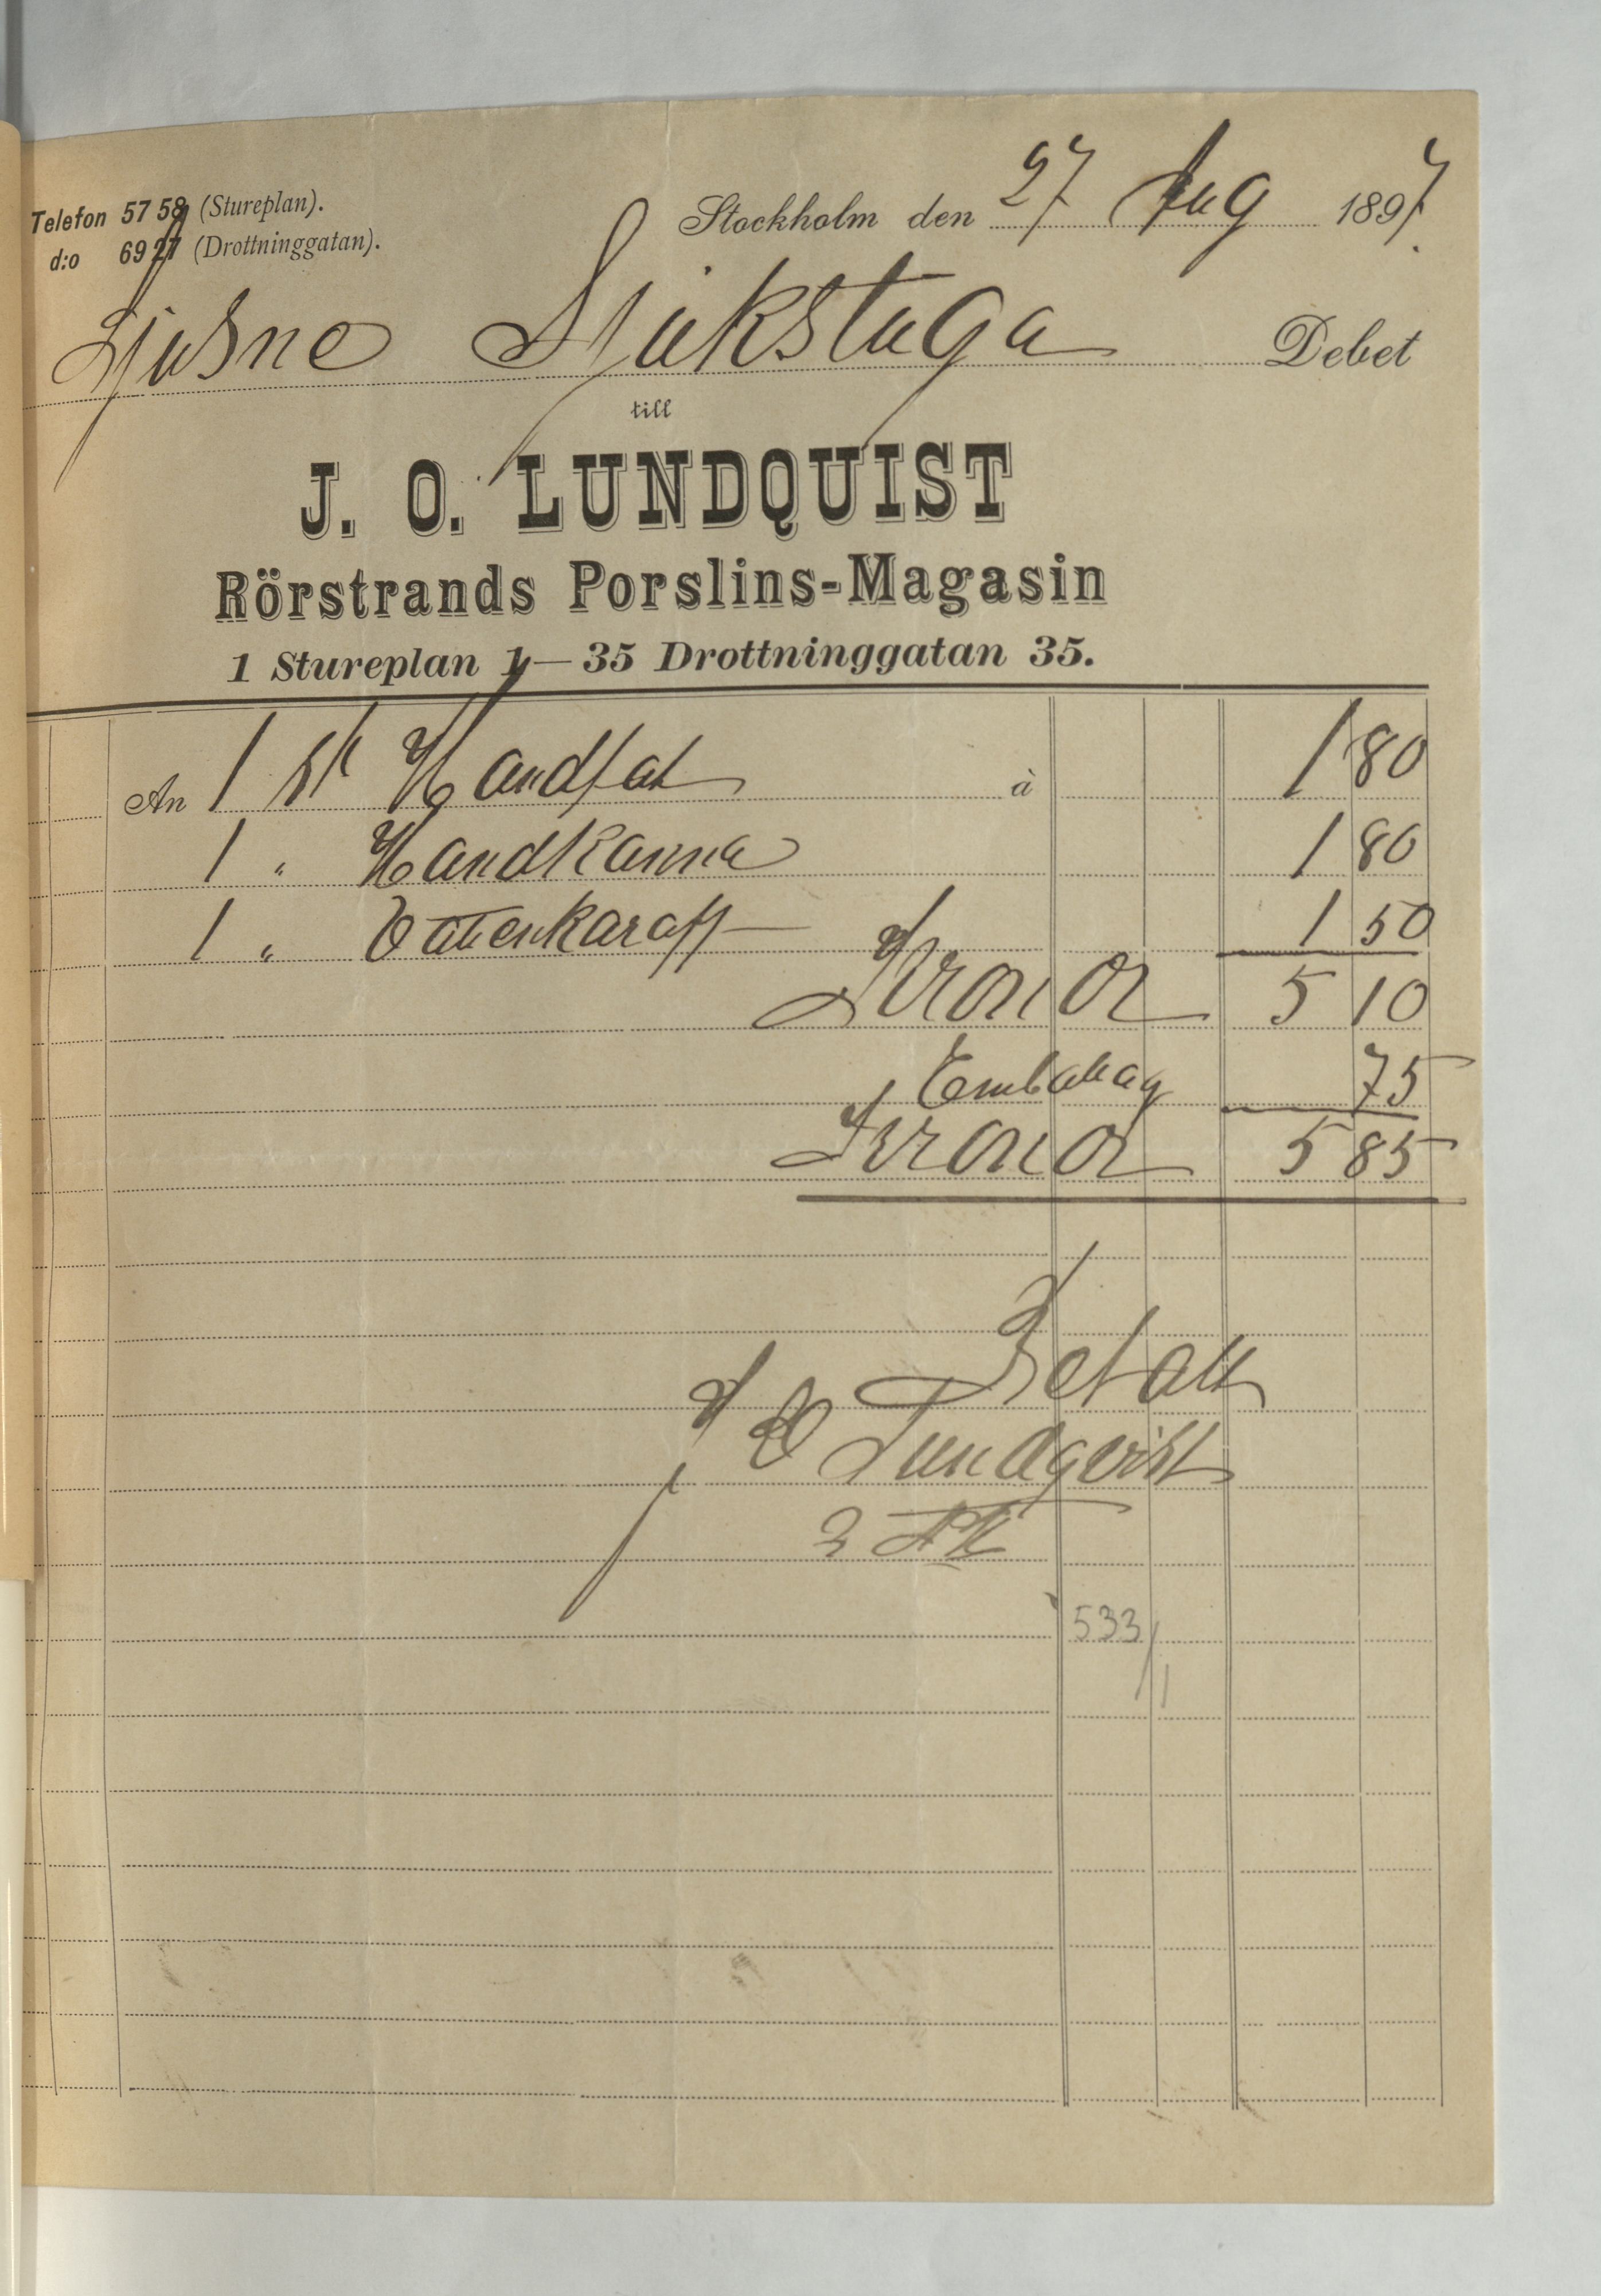 Telefon 57 58 (Stureplan).
d:o 69 27 (Drottninggatan).
Stockholm den 27 Aug 1897.
Ljusne Sjukstuga Debet
till
J. O. LUNDQUIST
Rörstrands Porslins-Magasin
1 Stureplan 1—35 Drottninggatan 35.
An 1 st Handfat à 1 80
1 " Handkanna 1 80
1 " Vattenkaraff 1 50
Kronor 5 10
Emballag 75
Kronor 5 85
Betalt
J O Lundqvist
533